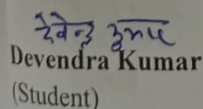 देवेन्द्र कुमार
Devendra Kumar
(Student)